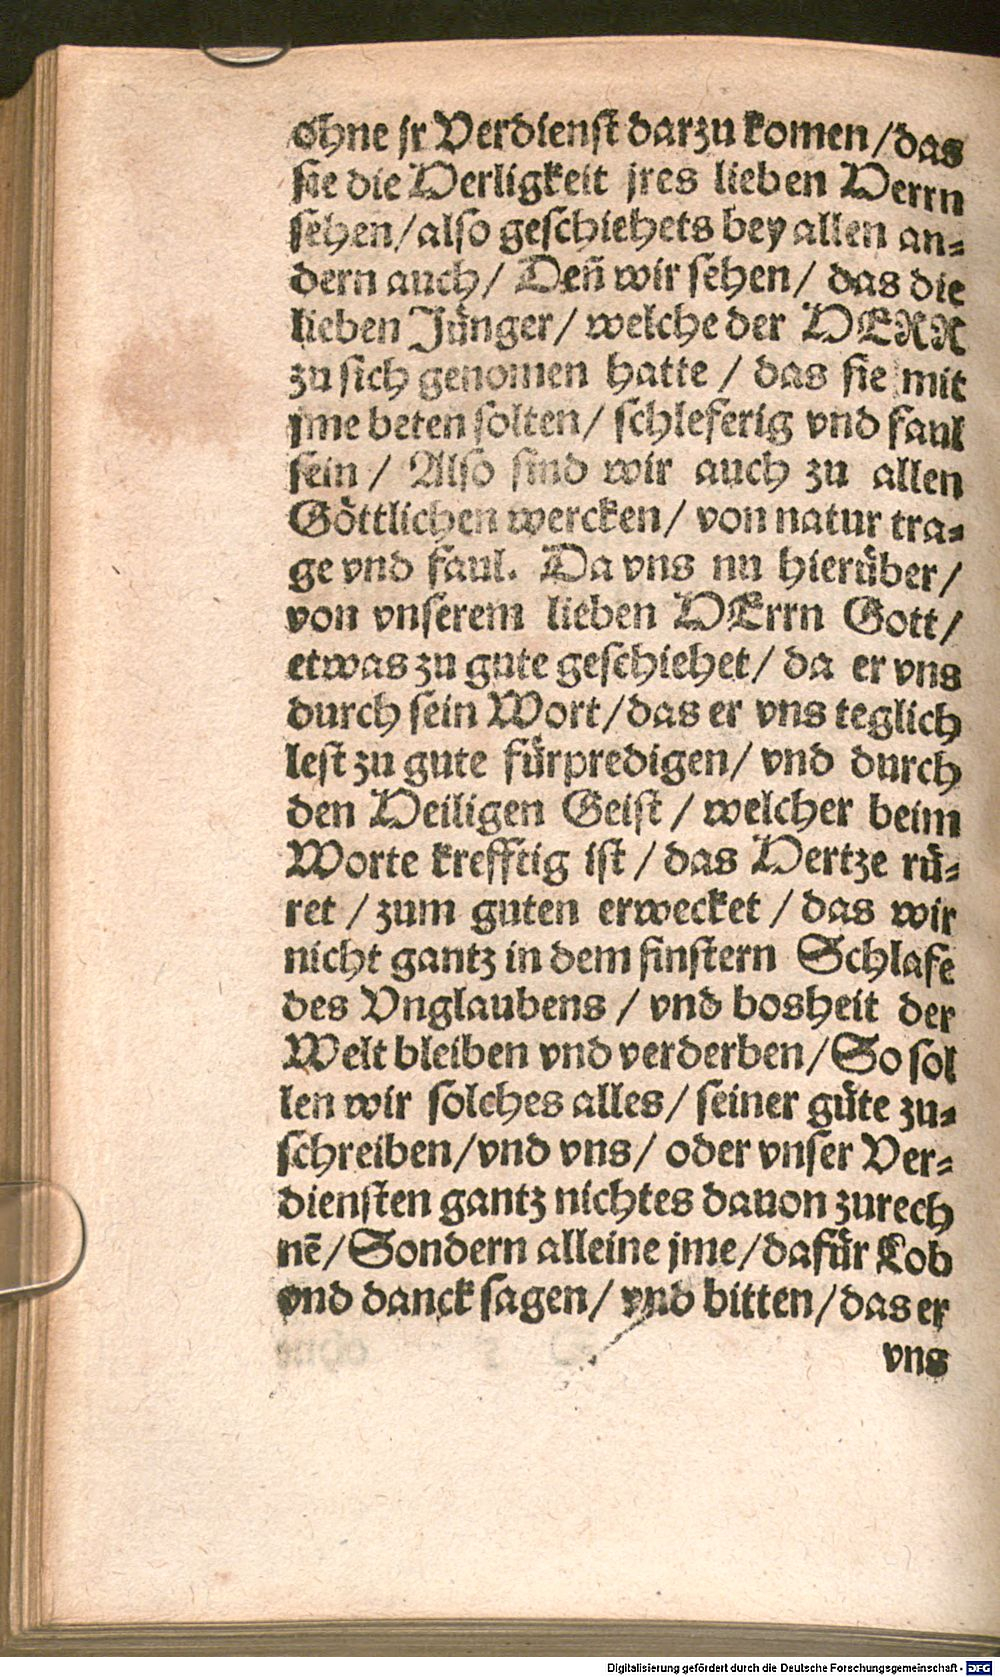 ohne jr Verdienst darzu komen /das
sie die Herligkeit jres lieben Herrn
sehen/also geschiehets bey allen an-
dern auch/ Deñ wir sehen/ das die
lieben Jünger/ welche der HERR
zu sich genomen hatte / das sie mit
jme beten solten/ schleferig vnd faul
sein / Also sind wir auch zu allen
Göttlichen wercken/ von natur tra-
ge vnd faul. Da vns nu hierüber/
von vnserem lieben HErrn Gott/
etwas zu gute geschiehet/ da er vns
durch sein Wort/das er vns teglich
lest zu gute fürpredigen/ vnd durch
den Heiligen Geist / welcher beim
Worte krefftig ist / das Hertze rü-
ret / zum guten erwecket / das wir
nicht gantz in dem finstern Schlafe
des Vnglaubens / vnd bosheit der
Welt bleiben vnd verderben/So sol
len wir solches alles/ seiner güte zu-
schreiben/vnd vns/ oder vnser Ver-
diensten gantz nichtes dauon zurech
nē/Sondern alleine jme/dafür Lob
vnd danck sagen/ vnd bitten/das er
vns
Digitalisierung gefördert durch die Deutsche Forschungsgemeinschaft - DFG